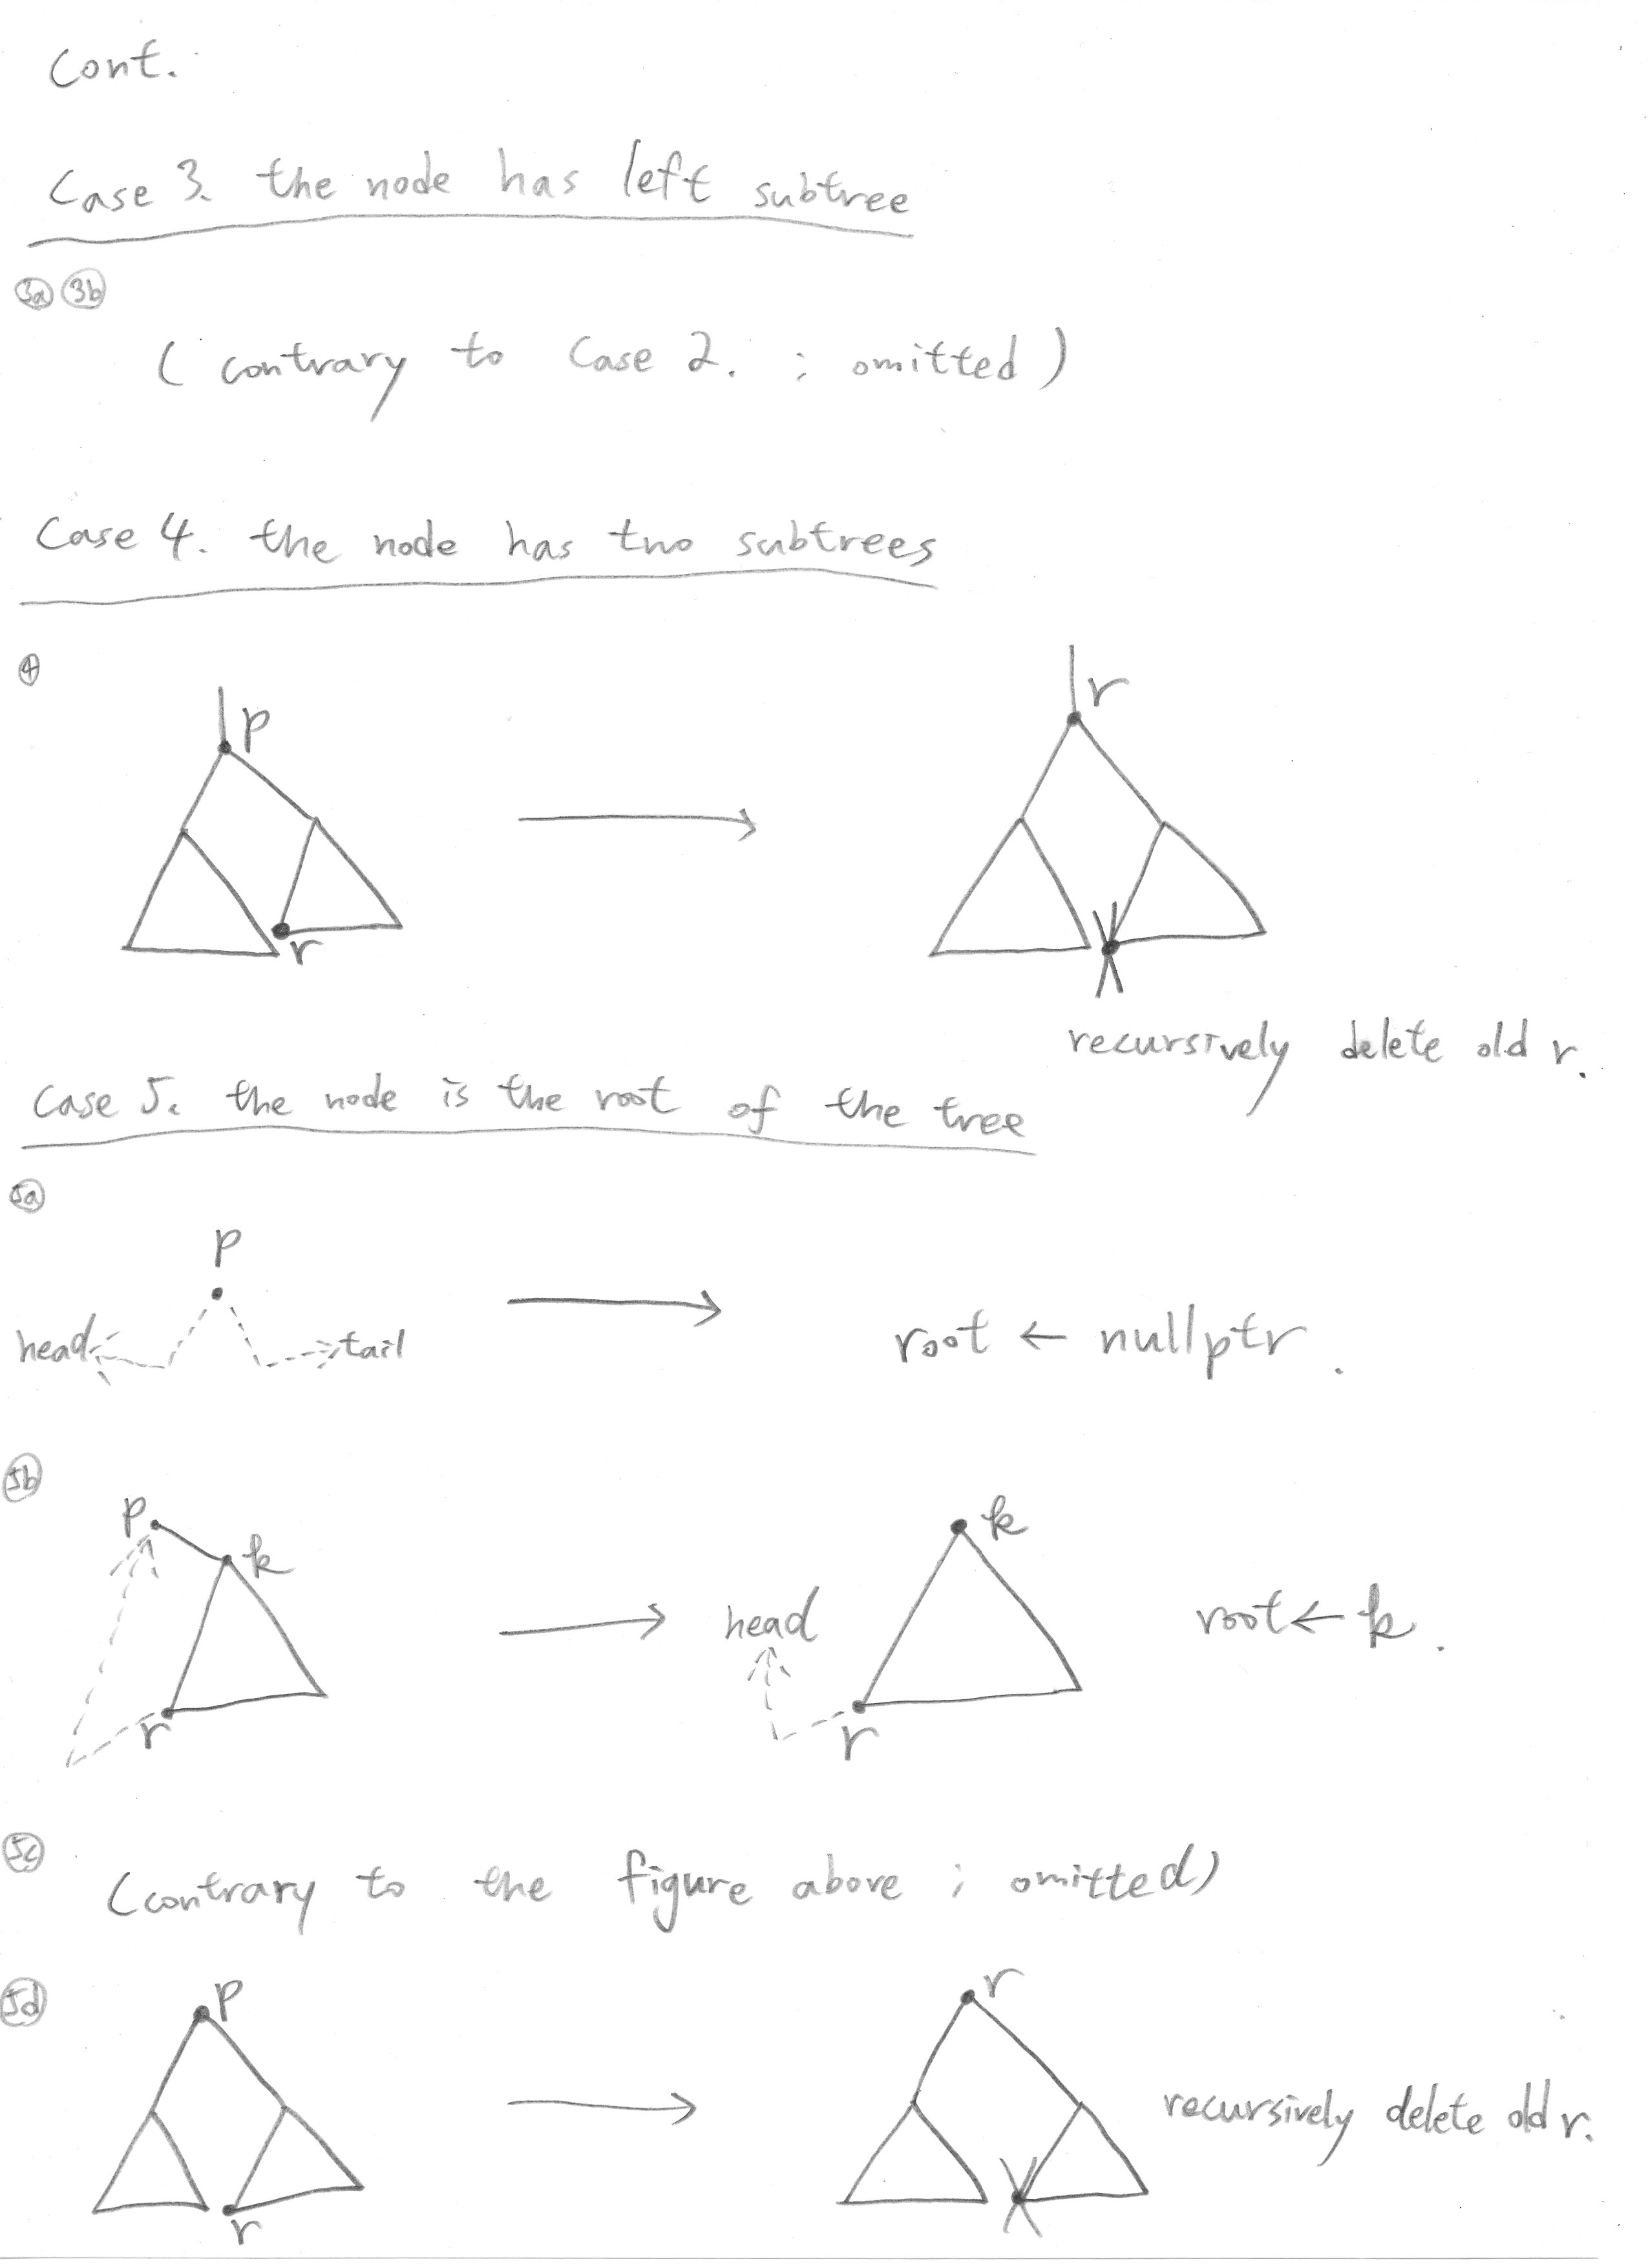 Cont.
Case 3. the node has left subtree
3a 3b
( contrary to Case 2. ; omitted )
Case 4. the node has two subtrees
4
p
r
r
recursively delete old r.
Case 5. the node is the root of the tree
5a
p
head
tail
root ← nullptr.
5b
p
k
r
head
k
r
root ← k.
5c
(contrary to the figure above ; omitted)
5d
p
r
r
recursively delete old r.